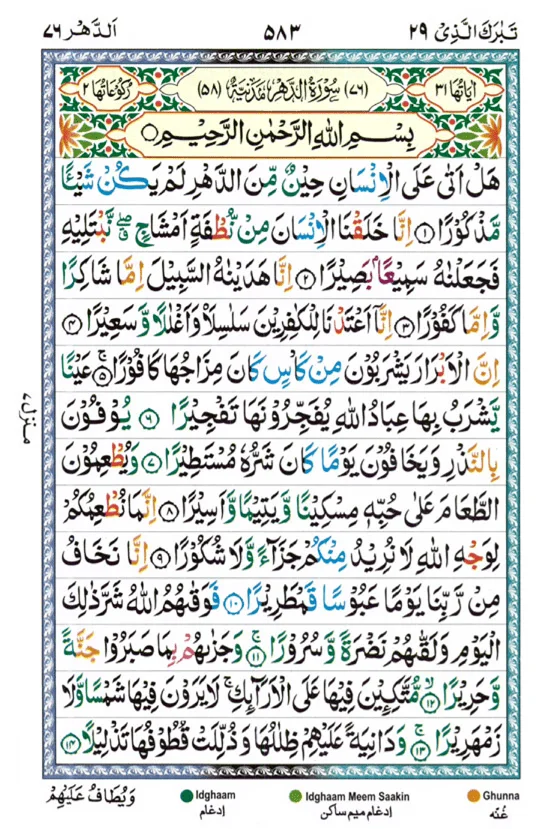 تَبٰرَكَ الَّذِىْ ٢٩
٥٨٣
اَلدَّهْر ٧٦
اٰيَاتُهَا ٣١
(٧٦) سُوْرَةُ الدَّهْرِ مَدَنِيَّةٌ (٩٨)
رُكُوْعَاتُهَا ٢
بِسْمِ اللهِ الرَّحْمٰنِ الرَّحِيْمِ
هَلْ اَتٰى عَلَى الْاِنْسَانِ حِيْنٌ مِّنَ الدَّهْرِ لَمْ يَكُنْ شَيْئًا
مَّذْكُوْرًا ١ اِنَّا خَلَقْنَا الْاِنْسَانَ مِنْ نُّطْفَةٍ اَمْشَاجٍ ۖۗ نَّبْتَلِيْهِ
فَجَعَلْنٰهُ سَمِيْعًاۢ بَصِيْرًا ٢ اِنَّا هَدَيْنٰهُ السَّبِيْلَ اِمَّا شَاكِرًا
وَّاِمَّا كَفُوْرًا ٣ اِنَّاۤ اَعْتَدْنَا لِلْكٰفِرِيْنَ سَلٰسِلَا۟ وَاَغْلٰلًا وَّسَعِيْرًا ٤
اِنَّ الْاَبْرَارَ يَشْرَبُوْنَ مِنْ كَاْسٍ كَانَ مِزَاجُهَا كَافُوْرًا ٥ عَيْنًا
يَّشْرَبُ بِهَا عِبَادُ اللهِ يُفَجِّرُوْنَهَا تَفْجِيْرًا ٦ يُوْفُوْنَ
بِالنَّذْرِ وَيَخَافُوْنَ يَوْمًا كَانَ شَرُّهٗ مُسْتَطِيْرًا ٧ وَيُطْعِمُوْنَ
الطَّعَامَ عَلٰى حُبِّهٖ مِسْكِيْنًا وَّيَتِيْمًا وَّاَسِيْرًا ٨ اِنَّمَا نُطْعِمُكُمْ
لِوَجْهِ اللهِ لَا نُرِيْدُ مِنْكُمْ جَزَآءً وَّلَا شُكُوْرًا ٩ اِنَّا نَخَافُ
مِنْ رَّبِّنَا يَوْمًا عَبُوْسًا قَمْطَرِيْرًا ١٠ فَوَقٰىهُمُ اللهُ شَرَّ ذٰلِكَ
الْيَوْمِ وَلَقّٰىهُمْ نَضْرَةً وَّسُرُوْرًا ۚ ١١ وَجَزٰىهُمْ بِمَا صَبَرُوْا جَنَّةً
وَّحَرِيْرًا ۙ ١٢ مُّتَّكِـِٕيْنَ فِيْهَا عَلَى الْاَرَآئِكِ ۚ لَا يَرَوْنَ فِيْهَا شَمْسًا وَّلَا
زَمْهَرِيْرًا ۚ ١٣ وَدَانِيَةً عَلَيْهِمْ ظِلٰلُهَا وَذُلِّلَتْ قُطُوْفُهَا تَذْلِيْلًا ١٤
منزل ٧
وَيُطَافُ عَلَيْهِمْ
Idghaam ادغام
Idghaam Meem Saakin ادغام میم ساکن
Ghunna غُنّه